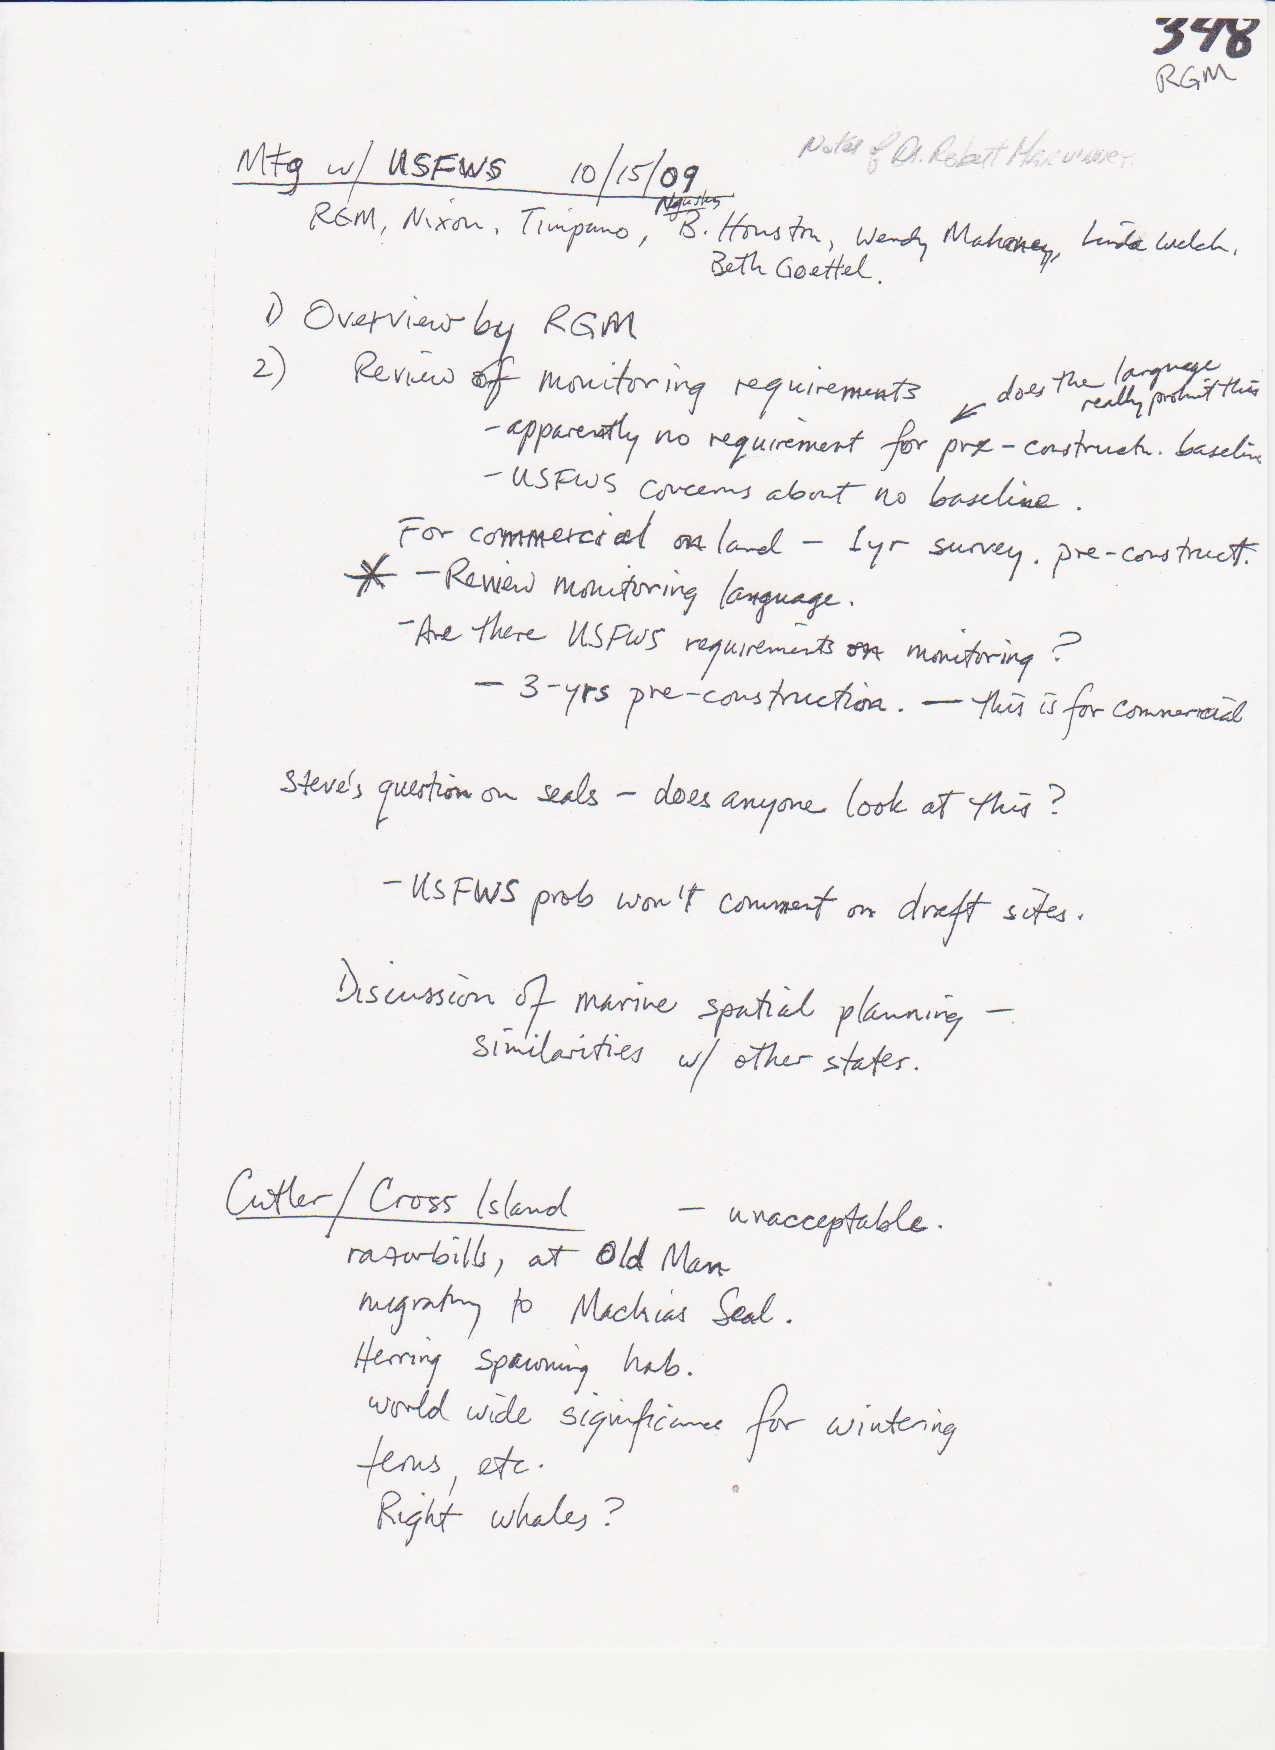 348
RGM
Notes of Dr. Robert
Mtg w/ USFWS 10/15/09
RGM, Nixon, Timpano, B. Houston, Wendy Mahoney, Linda Welch.
Beth Goettel.
1) Overview by RGM
2) Review of monitoring requirements
does the language
really prohibit this
- apparently no requirement for pre-constructn. baseline
- USFWS concerns about no baseline.
For commercial on land - 1yr survey. pre-construct.
* - Review monitoring language.
- Are there USFWS requirements on monitoring?
- 3-yrs pre-construction. - this is for commercial
Steve's question on seals - does anyone look at this?
- USFWS prob won't comment on draft sites.
Discussion of marine spatial planning -
similarities w/ other states.
Cutler/Cross Island - unacceptable.
razorbills, at Old Man
migrating to Machias Seal.
Herring spawning hab.
world wide significance for wintering
terns, etc.
Right whales?